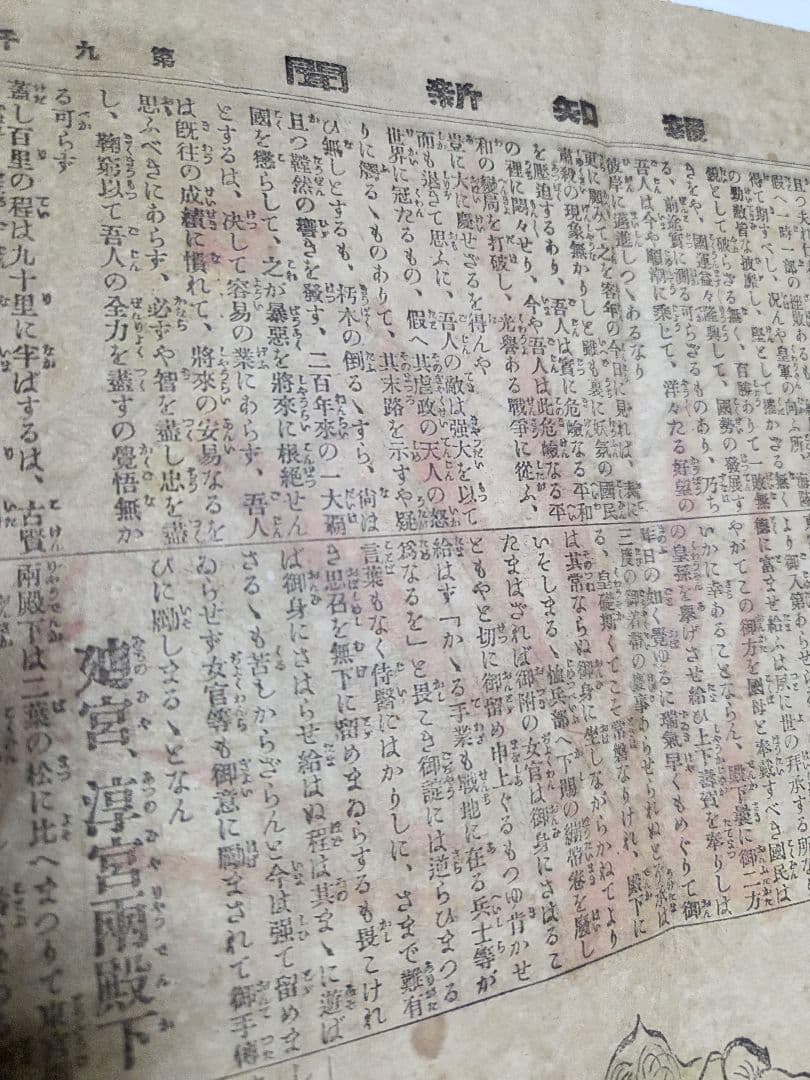 報知新聞
第九千
且つ
假へ一時一部の
得て期すべし、況んや皇軍の向ふ所、
の勁敵皆な披靡し、堅として
觀として破らざる無く、百勝ありて一敗無
きをや、國運益々隆興して、國勢の發展す
る、前途實に測る可らざるものあり、乃ち
吾人は今や順潮に乘じて、洋々たる好望の
彼岸に邁進しつゝあるなり
更に顧みて之を客年の今日に見れば、
肅殺の現象無かりしと雖も裏に妖氛の國民
を壓迫するあり、吾人は實に危險なる平和
の裡に悶々せり、今や吾人は此危險なる平
和の變局を打破し、光譽ある戰爭に從ふ、
豈に大に慶せざるを得んや
而も退きて思ふに、吾人の敵は强大を以て
世界に冠たるもの、假へ其虐政の天人の怒
りに觸るゝものありて、其末路を示すや疑
ひ無しとするも、朽木の倒るゝすら、尙ほ
且つ鞺然の響きを發す、二百年來の一大禍
國を懲らして、之が暴惡を將來に根絕せん
とするは、决して容易の業にあらず、吾人
は旣往の成績に慣れて、將來の安易なるを
思ふべきにあらず、必ずや智を盡し忠を盡
し、鞠窮以て吾人の全力を盡すの覺悟無か
る可らず
蓋し百里の程は九十里に半ばするは、古賢
より御入第あらせ
德に富ませ給ふは夙に世の拜承する所な
やがてこの御方を國母と奉戴すべき國民は
いかに幸あることならん、殿下曩に御二方
の皇孫を擧げさせ給ひ上下壽賀を奉りしは
昨日の如く覺ゆるに瑞氣早くもめぐりて御
三度の御着帶の慶事ありせられぬと
る、皇礎期くてこそ常磐なりけれ、殿下に
は其常ならぬ御身に坐しながらかねてより
いそしまるゝ恤兵部へ下賜の繃帶卷を廢し
たまはざれば御附の女官は御身にさはるこ
ともやと切に御留め申上ぐるもつゆ肯かせ
給はず「かゝる手業も戰地に在る兵士等が
爲なるを」と畏こき御諚には逆らひまつる
言葉もなく侍醫にはかりしに、さまで難有
き思召を無下に留めまゐらするも畏こけれ
ば御身にさはらせ給はぬ程は其まゝに遊ば
さるゝも苦しからざらんと今は强て留めま
ゐらせず女官等も御意に勵まされて御手傳
ひに勵しまるゝとなん
迪宮、淳宮兩殿下
兩殿下は二葉の松に比へまつりて東宮